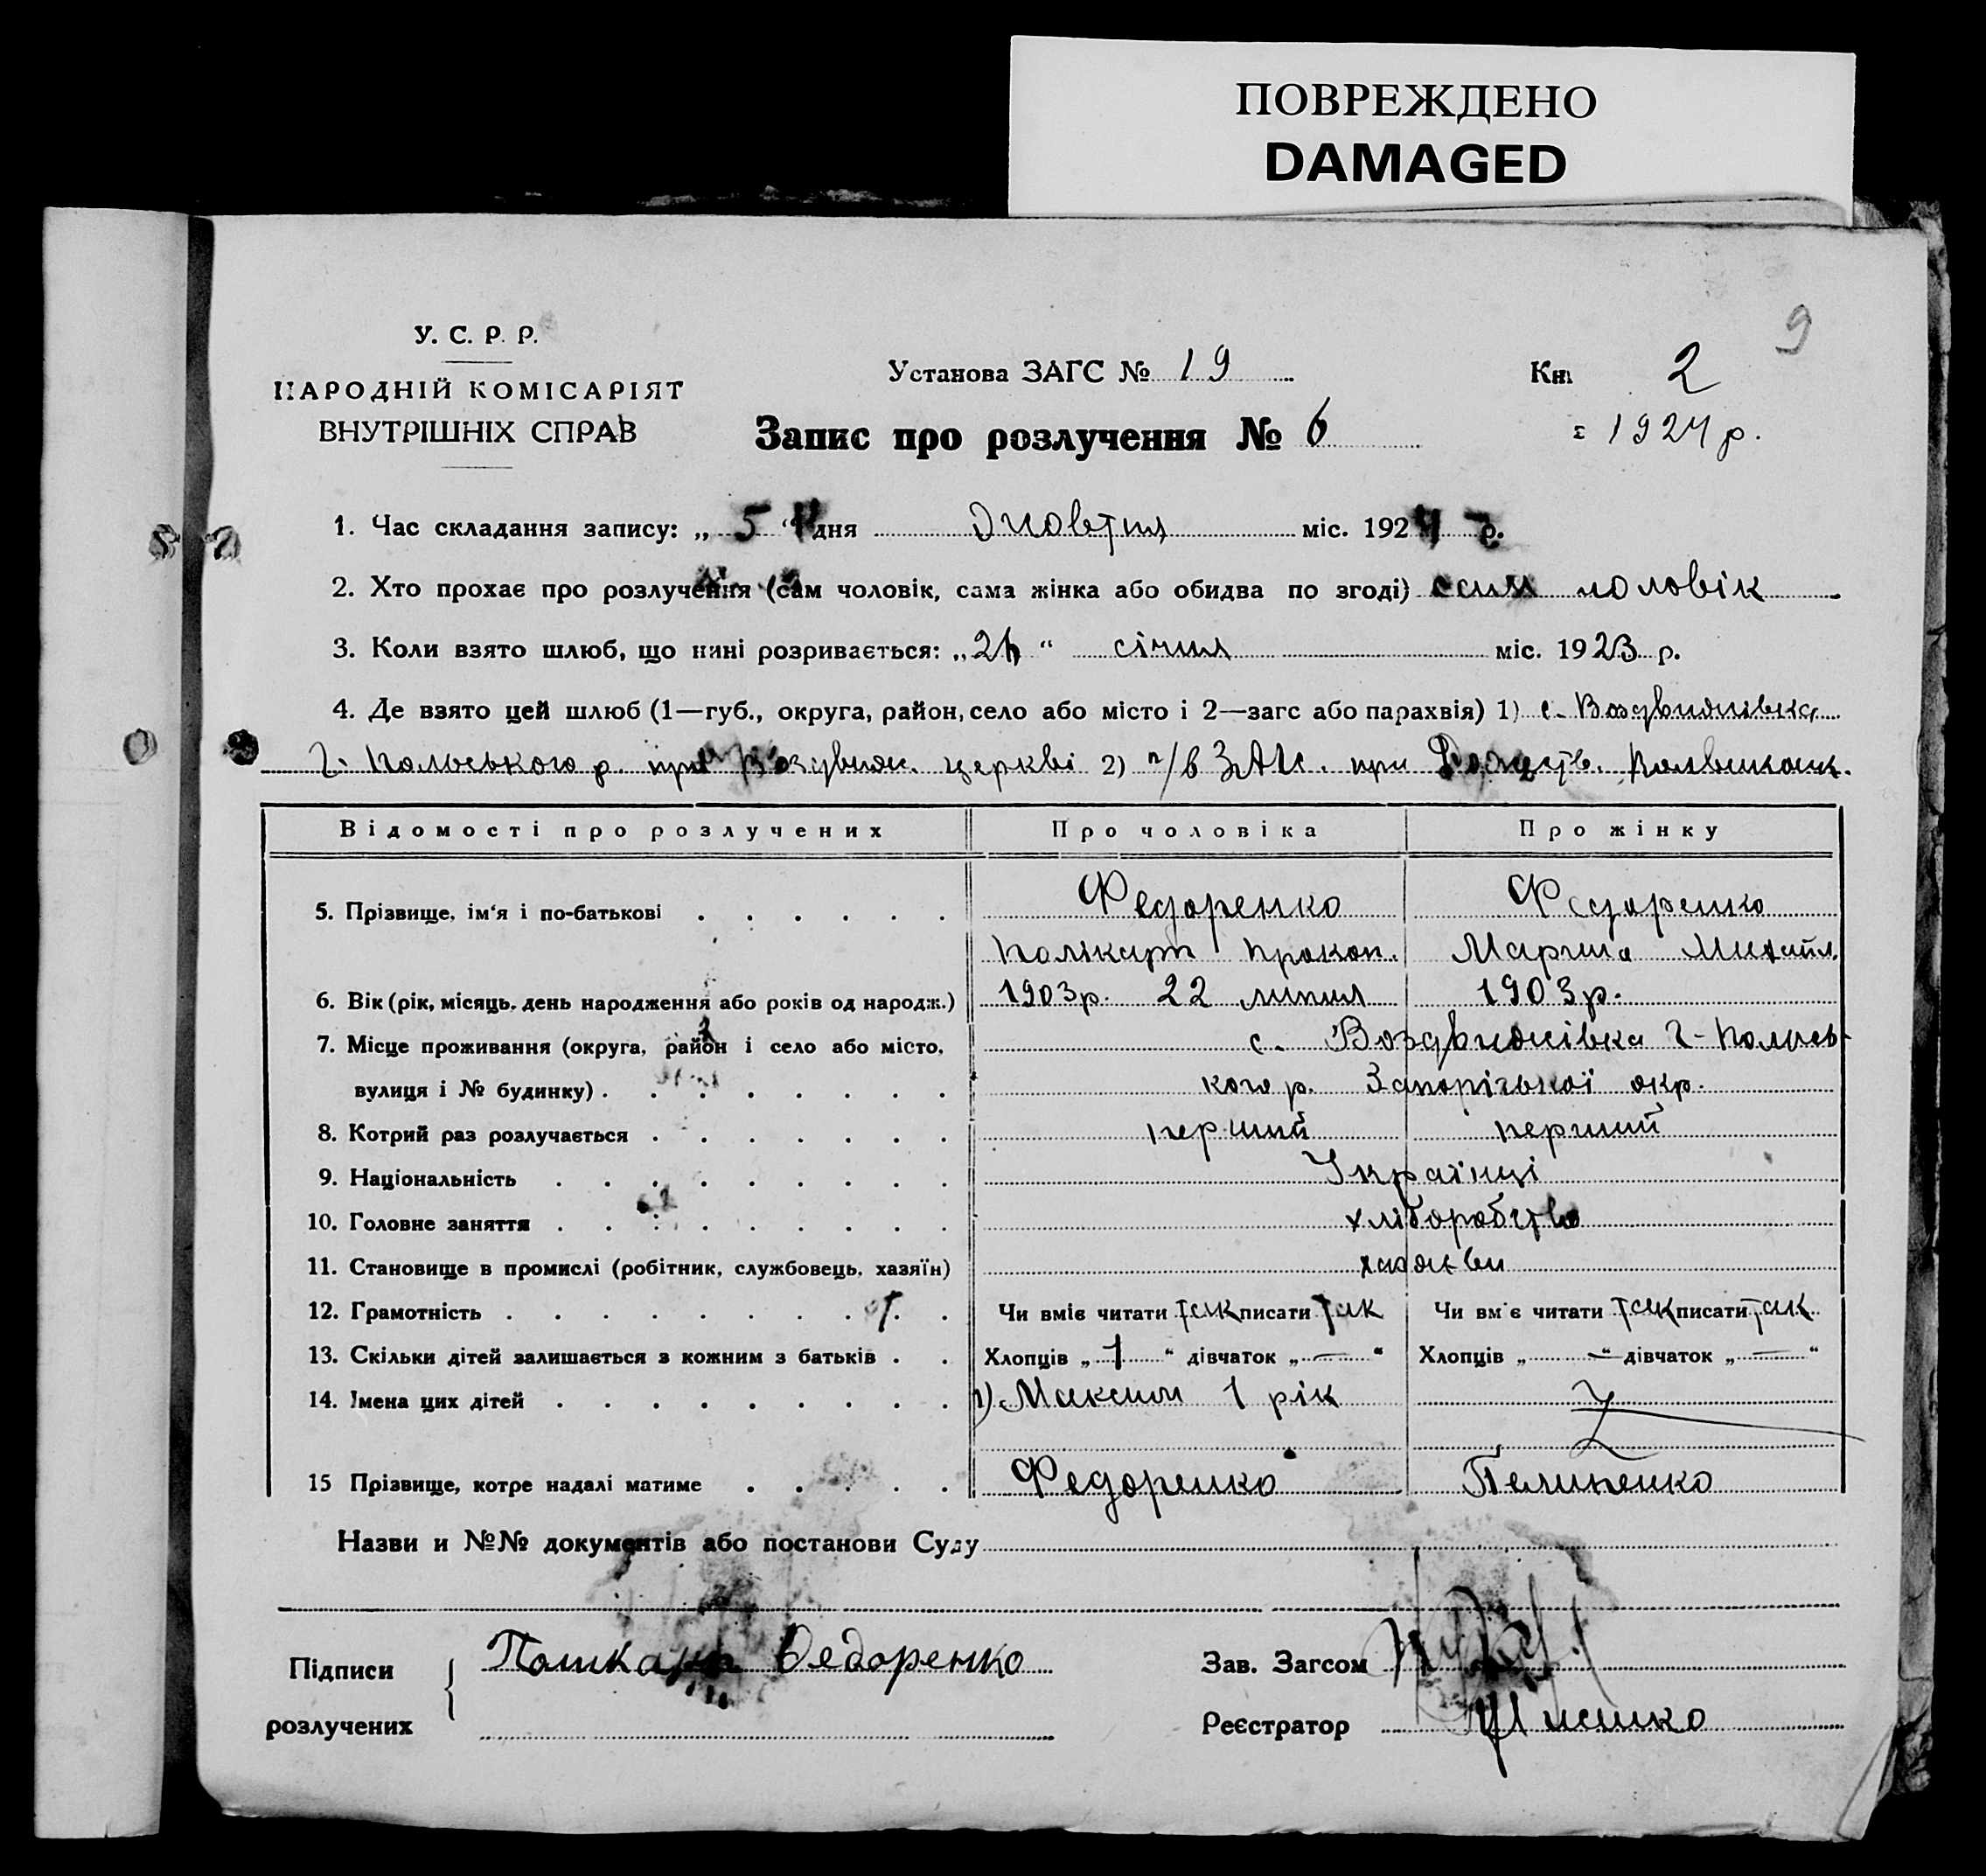 ПОВРЕЖДЕНО
DAMAGED
9
У. С. Р. Р.
НАРОДНІЙ КОМІСАРІЯТ
ВНУТРІШНІХ СПРАВ
Установа ЗАГС № 19
Кн 2
Запис про розлучення № 6
1924 р.
1. Час складання запису: „ 5 “ дня жовтня міс. 1924 р.
2. Хто прохає про розлучення (сам чоловік, сама жінка або обидва по згоді) сам чоловік
3. Коли взято шлюб, що нині розривається: „ “ січня міс. 1923 р.
4. Де взято цей шлюб (1—губ., округа, район, село або місто і 2—загс або парахвія) 1) с. Воздвиживка
Г. Польського р. при Воздвиж. церкві 2) при
Відомості про розлучених Про чоловіка Про жінку
5. Прізвище, ім‘я і по-батькові Федоренко Федоренко
Полікарп Прокоп. Марина Михайл.
6. Вік (рік, місяць, день народження або років од народж.) 1903р. 22 липня 1903р.
7. Місце проживання (округа, район і село або місто, с. Воздвижнівка Г-Польсь-
вулиця і № будинку) кого р. Запорізької окр.
8. Котрий раз розлучається перший перший
9. Національність Українці
10. Головне заняття хліборобство
11. Становище в промислі (робітник, службовець, хазяїн)
12. Грамотність Чи вміє читати так писати так Чи вм є читати так писати так
13. Скільки дітей залишається з кожним з батьків Хлопців „ 1 “ дівчаток „ — “ Хлопців „ — “ дівчаток „ — “
14. Імена цих дітей 1) Максим 1 рік
15 Прізвище, котре надалі матиме Федоренко Пелипенко
Назви и №№ документів або постанови Суду
Підписи Федоренко Зав. Загсом
розлучених Реєстратор